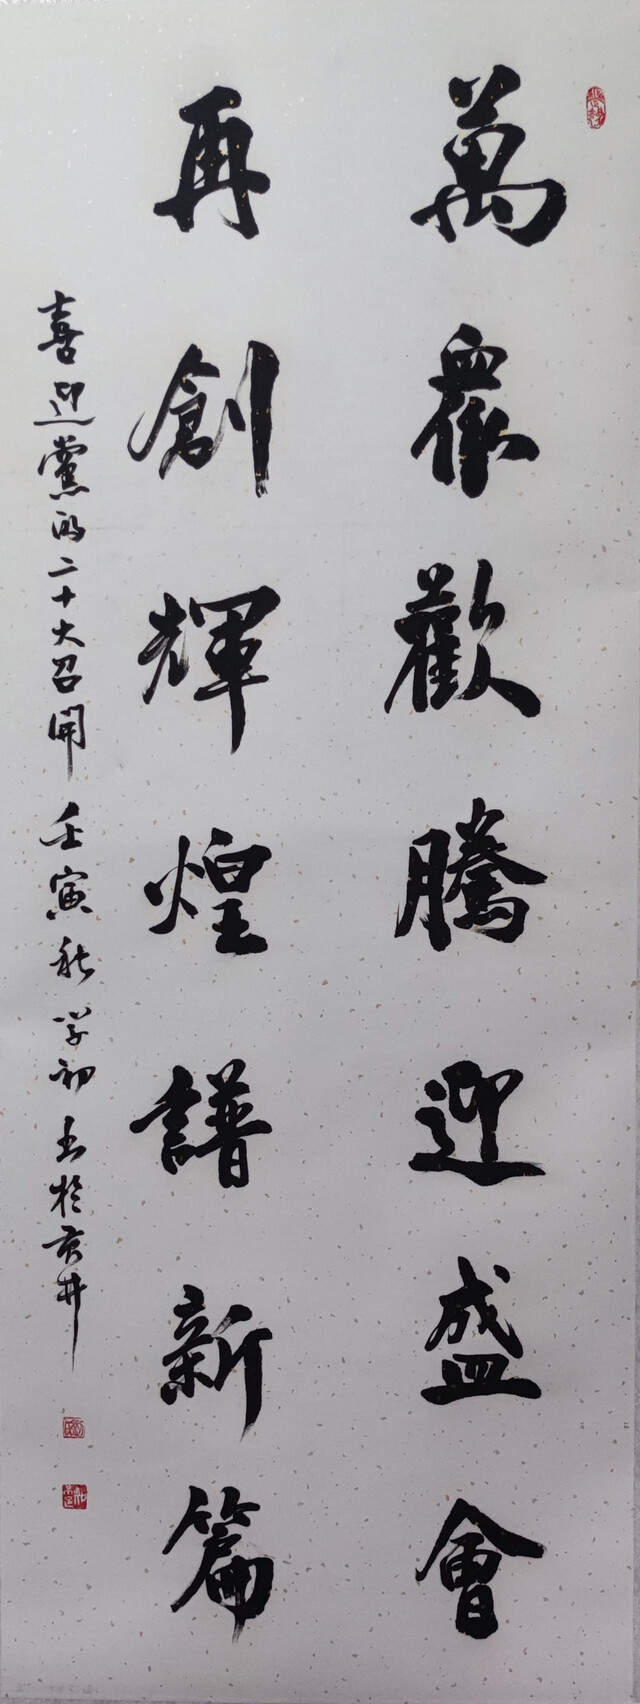 萬眾歡騰迎盛會
再創輝煌譜新篇
喜迎黨的二十大召開 壬寅秋 學初 書於貢井